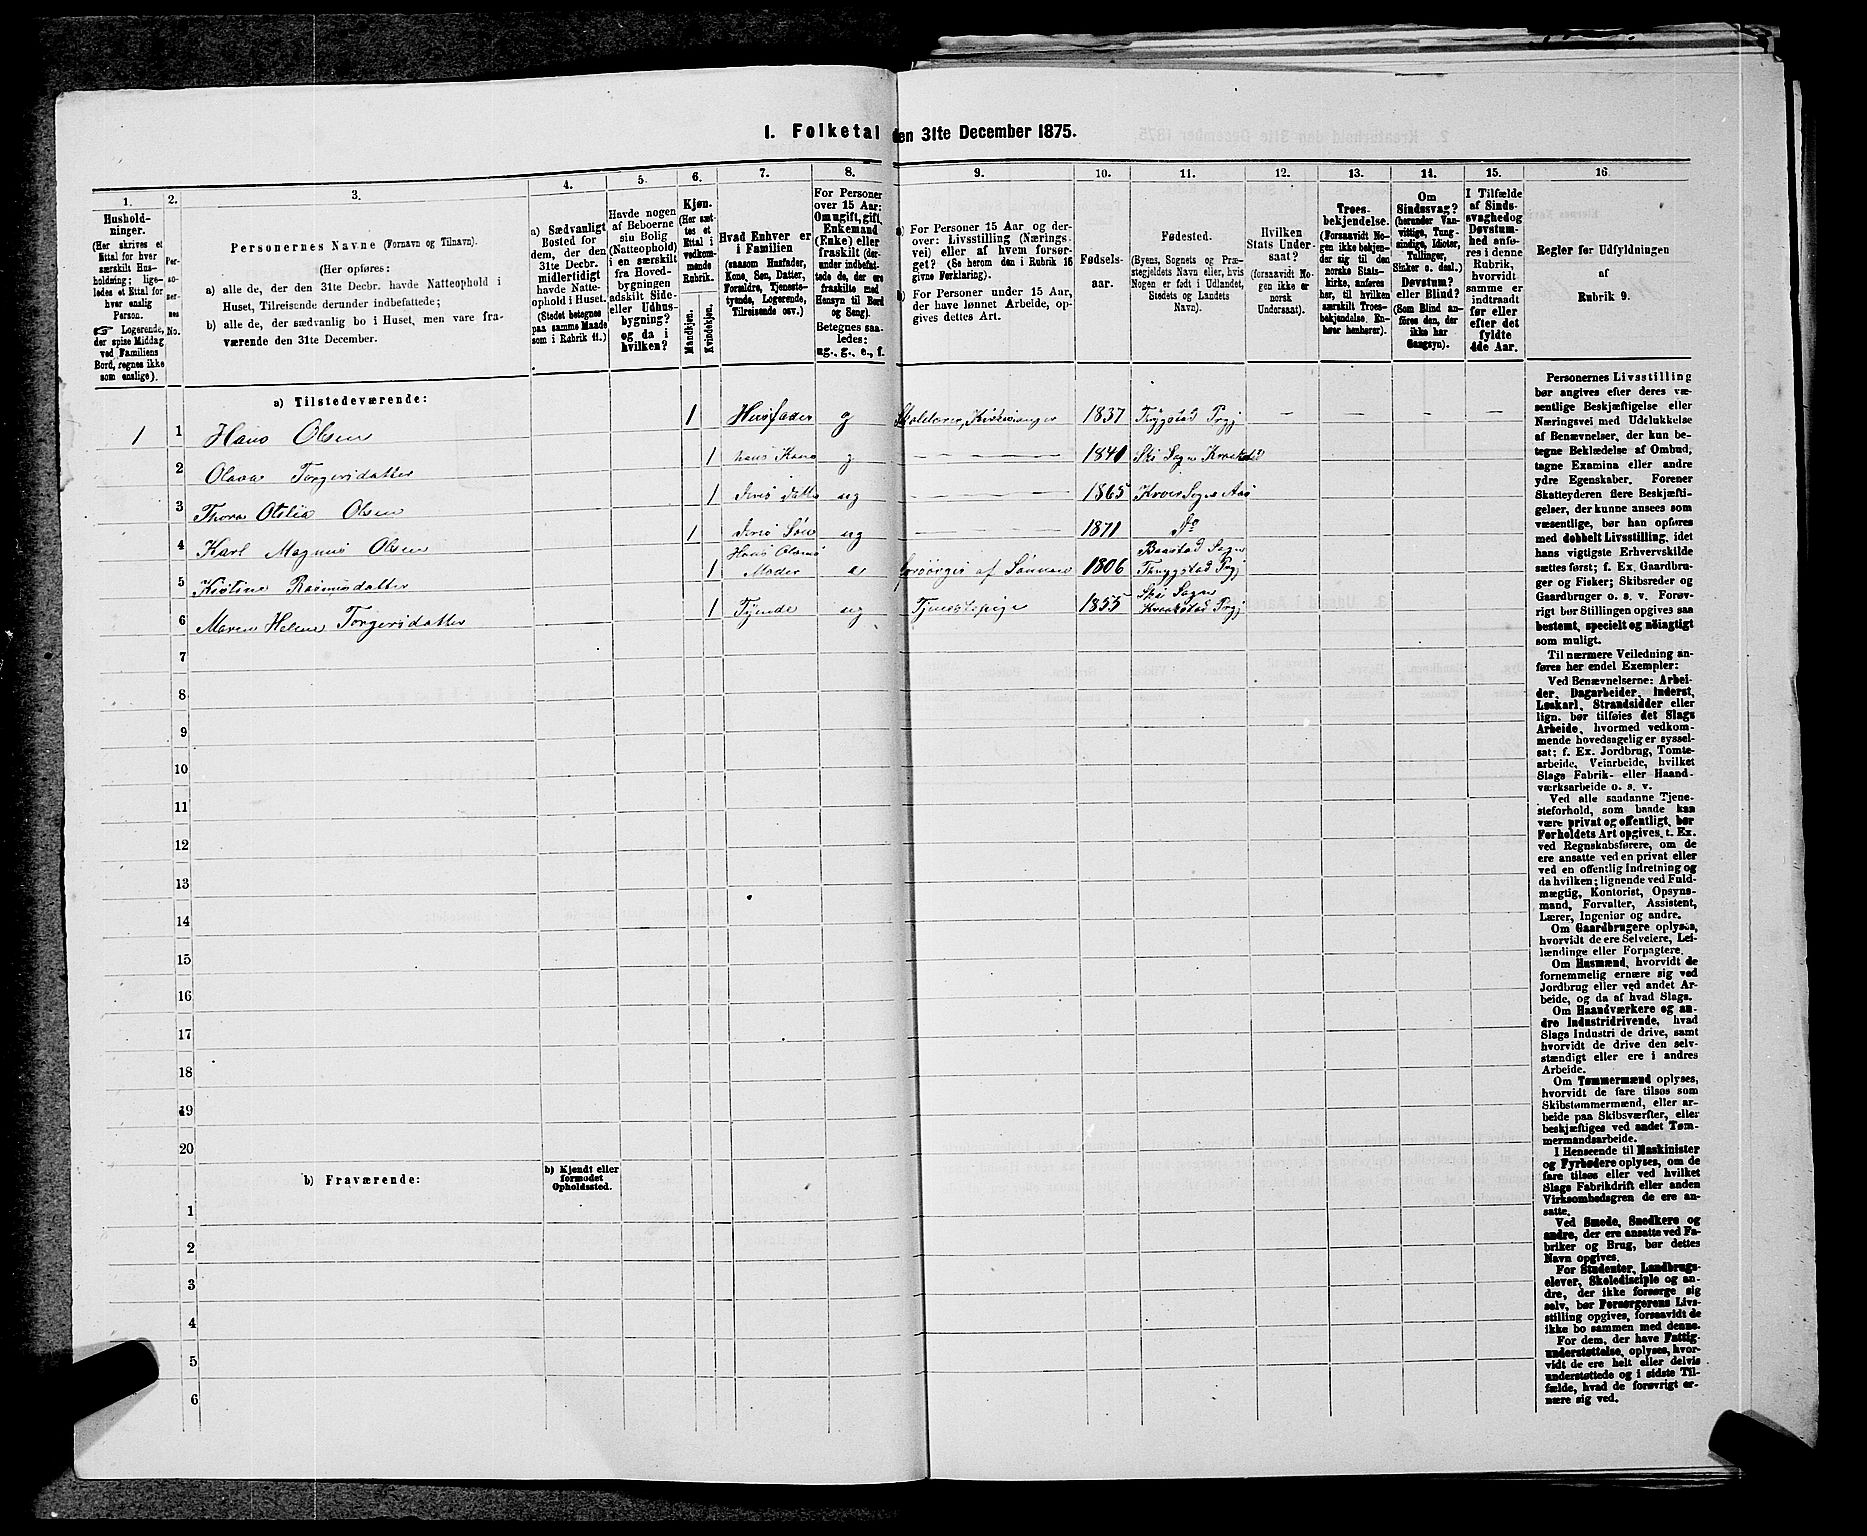 I. Folketal den 31te December 1875.
1.
Hushold-
ninger.
(Her skrives et
Ettal for hver
særskilt Hus-
holdning; lige-
ledes et Ettal for
hver enslig
Person.
Logerende,
der spise Middag
ved Familiens
Bord, regnes ikke
som enslige).
2.
Per-
so-
ner-
nes
No.
3.
Personernes Navne (Fornavn og Tilnavn).
(Her opføres:
a) alle de, der den 31te Decbr. havde Natteophold i
Huset, Tilreisende derunder indbefattede;
b) alle de, der sædvanlig bo i Huset, men vare fra-
værende den 31te December.
4.
a) Sædvanligt
Bosted for
dem, der den
31te Decbr.
midlertidigt
havde Natte-
ophold i Huset.
(Stedet betegnes
paa samme Maade
som i Rubrik 11.)
5.
Havde nogen
af Beboerne
sin Bolig
(Natteophold)
i en særskilt
fra Hoved-
bygningen
adskilt Side-
eller Udhus-
bygning?
og da i
hvilken?
6.
Kjøn.
(Her sæt-
tes et
Ettal i
vedkom-
mende
Rubrik.
Mandkjøn.
Kvindekjøn.
7.
Hvad Enhver er
i Familien
(saasom Husfader,
Kone, Søn, Datter,
Forældre, Tjeneste-
tyende, Logerende,
Tilreisende osv.)
8.
For Personer
over 15 Aar:
Om ugift, gift,
Enkemand
(Enke) eller
fraskilt (der-
under indbefat-
tede de, der ere
fraskilte med
Hensyn til Bord
og Seng).
Betegnes saa-
ledes:
ug., g., e., f.
9.
a) For Personer 15 Aar og der-
over: Livsstilling (Nærings-
vei) eller af hvem forsør-
get? (Se herom den i Rubrik 16
givne Førklaring).
b) For Personer under 15 Aar,
der have lønnet Arbeide, op-
gives dettes Art.
10.
Fødsels-
aar.
11.
Fødested.
(Byens, Sognets og Præ-
stegjeldets Navn eller, hvis
Nogen er født i Udlandet,
Stedets og Landets
Navn).
12.
Hvilken
Stats Under-
saat?
(forsaavidt No-
gen ikke er
norsk
Undersaat).
13.
Troes-
bekjendelse.
(Forsaavidt No-
gen ikke bekjen-
der sig til den
norske Stats-
kirke, anføres
her, til hvilken
særskilt Troes-
bekjendelse. En-
hver henhører).
14.
Om
Sindssvag?
(herunder Van-
vittige, Tung-
sindige, Idioter,
Tullinger,
Sinker o. desl.)
Døvstum?
eller Blind?
(Som Blind an-
føres den, der
ikke har
Gangsyn).
15.
I Tilfælde
af Sinds-
svaghed og
Døvstum-
hed anfø-
res i denne
Rubrik,
hvorvidt
samme er
indtraadt
før eller
efter det
fyldte
4de Aar.
16.
Regler for Udfyldningen
af
Rubrik 9.
a) Tilstedeværende:
1 1 Hans Olsen 1 Husfader g Skolelærer, Kirkesanger 1837 Trygstad Prgj - - - -
2 Olava Torgersdatter 1 hans Kone g - - - - 1841 Ski Sogn
3 Thora Otilia Olsen 1 deres Datter ug - - - - 1865 Kroer Sogn Aas
4 Karl Magnus Olsen 1 deres Søn ug - - - - 1871 Do
5 Kistine Rasmusdatter 1 Hans Olsens Moder e forsørges af Sønnen 1806 Baastad Sogn Thrygstad Prgj
6 Maren Helene Torgersdatter 1 Tjende ug Tjenestepige 1855 Ski Sogn Kraakstad Prgj
7
8
9
10
11
12
13
14
15
16
17
18
19
20
b) Fraværende:
b) Kjendt eller
formodet
Opholdssted.
1
2
3
4
5
6
Personernes Livsstilling
bør angives efter deres væ-
sentlige Beskjæftigelse eller
Næringsvei med Udelukkelse
af Benævnelser, der kun be-
tegne Beklædelse af Ombud,
tagne Examina eller andre
ydre Egenskaber. Forener
Skatteyderen flere Beskjæfti-
gelser, der kunne ansees som
væsentlige, bør han opføres
med dobbelt Livsstilling, idet
hans vigtigste Erhvervskilde
sættes først; f. Ex. Gaardbru-
ger og Fisker; Skibsreder og
Gaardbruger o. s. v. Forøv-
rigt bør Stillingen opgives saa
bestemt, specielt og nøiagtigt
som muligt.
Til nærmere Veiledning an-
føres her endel Exempler:
Ved Benævnelserne: Arbei-
der, Dagarbeider, Inderst,
Løskarl, Strandsidder eller
lign. bør tilføies det Slags
Arbeide, hvormed vedkom-
mende hovedsagelig er syssel-
sat; f. Ex. Jordbrug, Tomte-
arbeide, Veiarbeide, hvilket
Slags Fabrik- eller Haand-
værksarbeide o. s. v.
Ved alle saadanne Tjene-
steforhold, som baade kan
være privat og offentligt, bør
Forholdets Art opgives, t. Ex.
ved Regnskabsførere, om de
ere ansatte ved en privat eller
ved en offentlig Indretning og
da hvilken; lignende ved Fuld-
mægtig, Kontorist, Opsyns-
mand, Forvalter, Assistent,
Lærer, Ingeniør og andre.
Om Gaardbrugere oplyses,
hvorvidt de ere Selveiere, Lei-
lændinge eller Forpagtere.
Om Husmænd, hvorvidt de
fornemmelig ernære sig ved
Jordbrug eller ved andet Ar-
beide, og da af hvad Slags.
Om Haandværkere og an-
dre Industridrivende, hvad
Slags Industri de drive, samt
hvorvidt de drive den selv-
stændigt eller ere i andres
Arbeide.
Om Tømmermænd oplyses,
hvorvidt de fare tilsøs som
Skibstømmermænd, eller ar-
beide paa Skibsværfter, eller
beskjæftiges ved andet Tøm-
mermandsarbeide.
I Henseende til Maskinister
og Fyrbødere oplyses, om de
fare tilsøs eller ved hvilket
Slags Fabrikdrift eller anden
Virksombedsgren de ere an-
satte.
Ved Smede, Snedkere og
andre, der ere ansatte ved Fa-
briker og Brug, bør dettes
Navn opgives.
For Studenter, Landbrugs-
elever, Skoledisciple og an-
dre, der ikke forsørge sig
selv, bør Forsørgerens Livs-
stilling opgives, forsaavidt de
ikke bo sammen med denne.
For dem, der have Fattig-
understøttelse, oplyses, hvor-
vidt de ere helt eller delvis
understøttede og i sidste Til-
fælde, hvad de forøvrigt er-
nære sig ved.